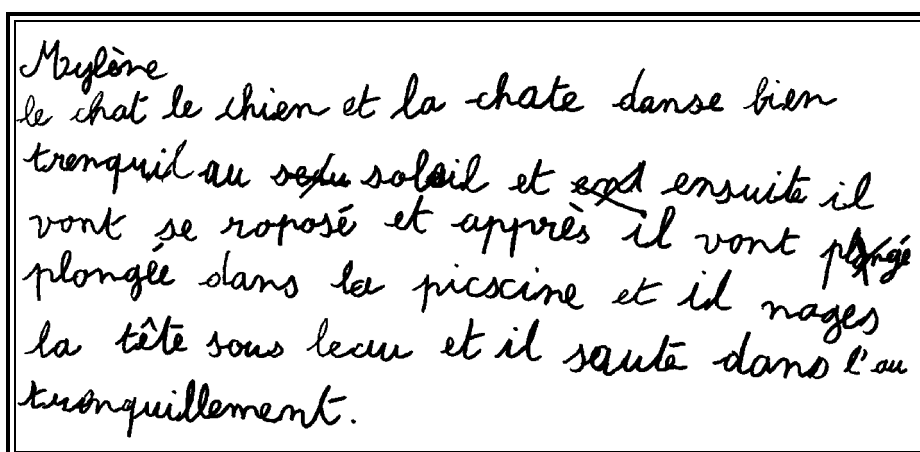 Mylène
le chat le chien et la chate danse bien
trenquil au soleil et ensuite il
vont se roposé et apprès il vont
plongée dans la picscine et il nages
la tête sous leau et il saute dans l'au
tranquillement.